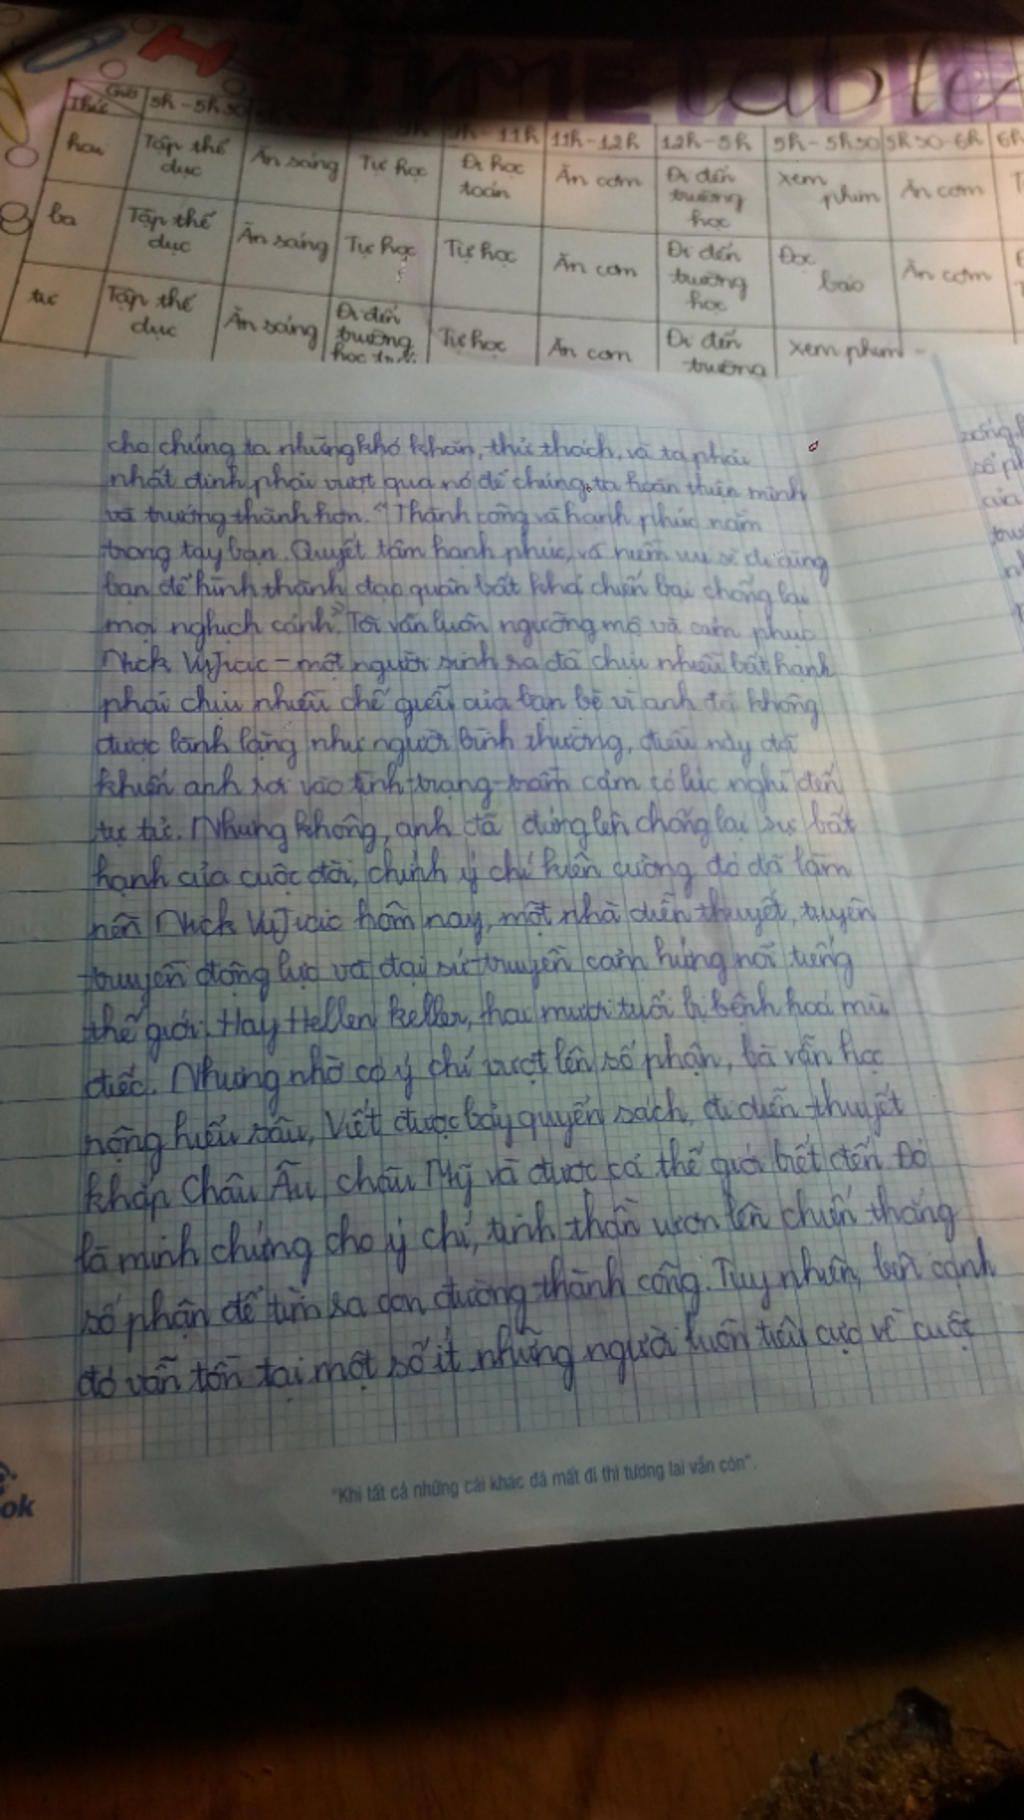 Timetable
Thứ Giờ 5h - 5h30 - 11h 11h - 12h 12h - 5h 5h - 5h30 5h30 - 6h 6h
hai Tập thể dục Ăn sáng Tự học Đi học toán Ăn cơm Đi đến trường học xem phim Ăn cơm
ba Tập thể dục Ăn sáng Tự học Tự học Ăn cơm Đi đến trường học Đọc báo Ăn cơm
tư Tập thể dục Ăn sáng Đi đến trường học Tự học Ăn cơm Đi đến trường xem phim
cho chúng ta những khó khăn, thử thách, và ta phải
nhất định phải vượt qua nó để chúng ta hoàn thiện mình
và trưởng thành hơn. "Thành công và hạnh phúc nằm
trong tay bạn. Quyết tâm hạnh phúc, và niềm vui sẽ đi cùng
bạn để hình thành đạo quân bất khả chiến bại chống lại
mọi nghịch cảnh". Tôi vẫn luôn ngưỡng mộ và cảm phục
Nick Vujicic - một người sinh ra đã chịu nhiều bất hạnh
phải chịu nhiều chế giễu của bạn bè vì anh đã không
được lành lặng như người bình thường, điều này đã
khiến anh rơi vào tình trạng trầm cảm có lúc nghĩ đến
tự tử. Nhưng không, anh đã đứng lên chống lại sự bất
hạnh của cuộc đời, chính ý chí kiên cường đó đã làm
nên Nick Vujicic hôm nay, một nhà diễn thuyết, truyền
truyền động lực và đại sứ truyền cảm hứng nổi tiếng
thế giới. Hay Hellen Keller, hai mươi tuổi bị bệnh hoá mù
điếc. Nhưng nhờ có ý chí vượt lên số phận, bà vẫn học
rộng hiểu sâu, viết được bảy quyển sách, đi diễn thuyết
khắp Châu Âu, châu Mỹ và được cả thế giới biết đến. Đó
là minh chứng cho ý chí, tinh thần vươn lên chiến thắng
số phận để tìm ra con đường thành công. Tuy nhiên, bên cạnh
đó vẫn tồn tại một số ít những người luôn tiêu cực về cuộc
"Khi tất cả những cái khác đã mất đi thì tương lai vẫn còn".
ok